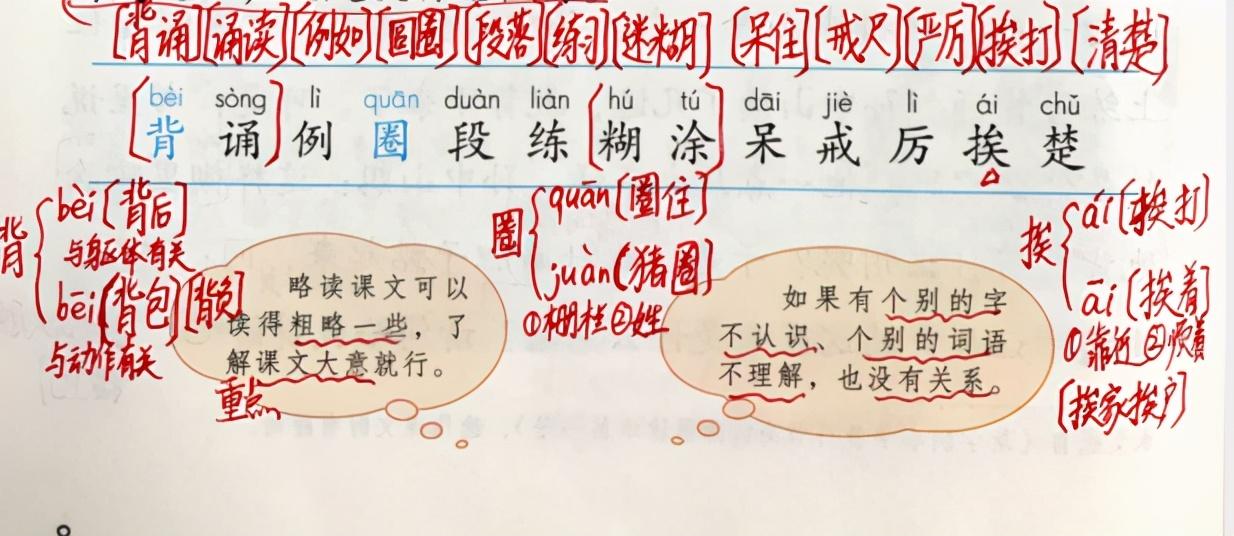 [背诵][诵读][例如][圆圈][段落][练习][迷糊][呆住][戒尺][严厉][挨打][清楚]
bèi sòng lì quān duàn liàn hú tú dāi jiè lì ái chǔ
[背 诵] 例 圈 段 练 [糊 涂] 呆 戒 厉 挨 楚
背
bèi[背后]
与躯体有关
bēi[背包][背负]
与动作有关
圈
quān[圈住]
juàn[猪圈]
①栅栏②姓
挨
ái[挨打]
āi[挨着]
①靠近②顺着
[挨家挨户]
略读课文可以
读得粗略一些，了
解课文大意就行。
重点
如果有个别的字
不认识、个别的词语
不理解，也没有关系。